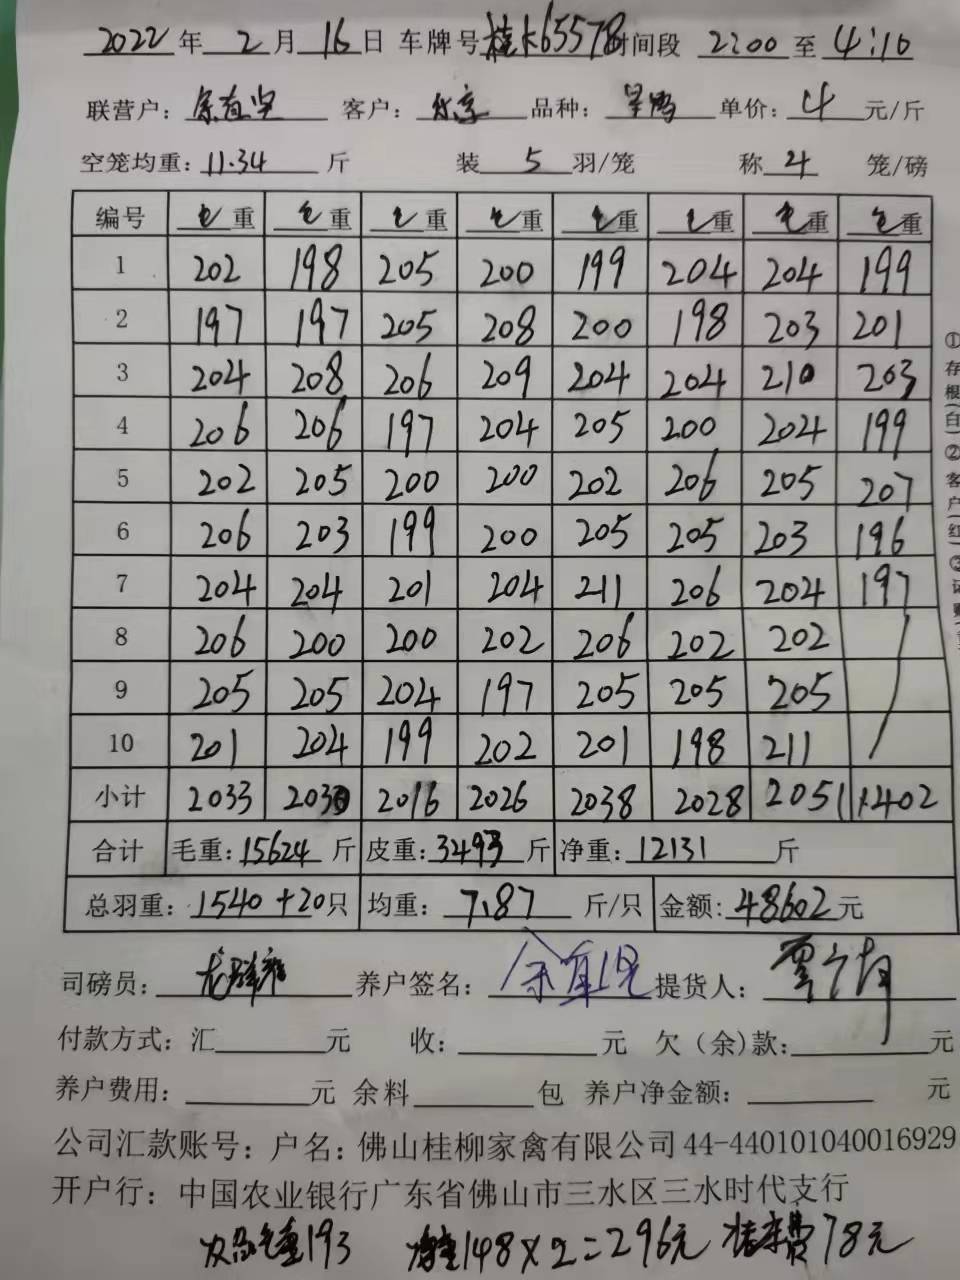 2022年2月16日 车牌号桂K65578时间段 22:00 至 4:10
联营户: 客户: 品种: 单价: 4 元/斤
空笼均重: 11.34 斤 装 5 羽/笼 称 4 笼/磅
编号 毛重 毛重 毛重 毛重 毛重 毛重 毛重 毛重
1 202 198 205 200 199 204 204 199
2 197 197 205 208 200 198 203 201
3 204 208 206 209 204 204 210 203
4 206 206 197 204 205 200 204 199
5 202 205 200 200 202 206 205 207
6 206 203 199 200 205 205 203 196
7 204 204 201 204 211 206 204 197
8 206 200 200 202 206 202 202
9 205 205 204 197 205 205 205
10 201 204 199 202 201 198 211
小计 2033 2030 2016 2026 2038 2028 2051 1402
合计 毛重: 15624 斤 皮重: 3493 斤 净重: 12131 斤
总羽重: 1540+20只 均重: 7.87 斤/只 金额: 48602元
司磅员: 养户签名: 提货人:
付款方式: 汇 元 收: 元 欠(余)款: 元
养户费用: 元 余料 包 养户净金额: 元
公司汇款账号: 户名: 佛山桂柳家禽有限公司 44-440101040016929
开户行: 中国农业银行广东省佛山市三水区三水时代支行
次品毛重193 148×2=296元 费78元
①存根(白)②客户(红)③